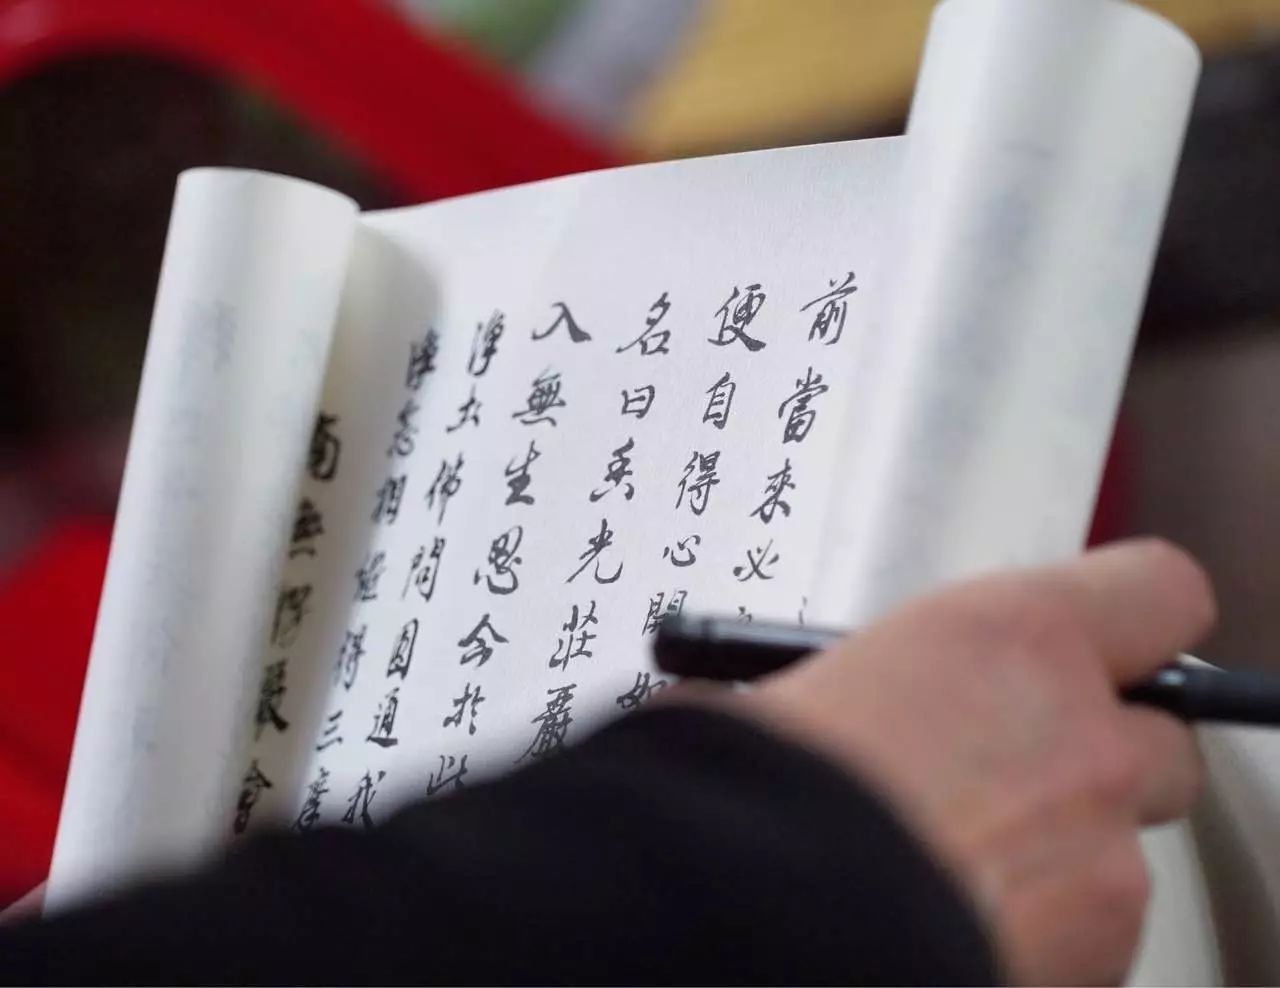 前當來必
便自得心開如
名曰香光莊嚴
入無生忍今於此
淨土佛問圓通我
淨念相繼得三摩
南無楞嚴會